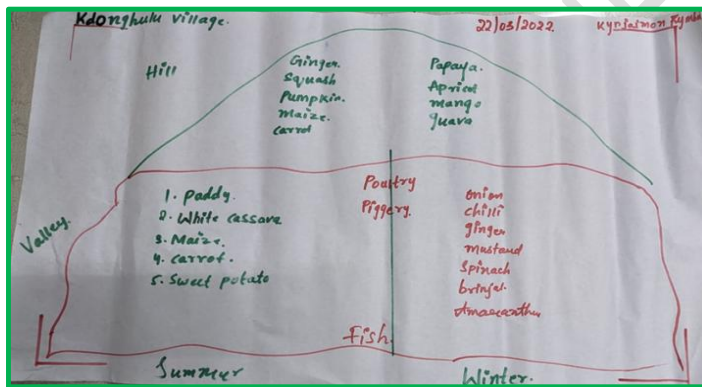 Kdonghulu village.
22/03/2022.
Kynsaimon
Hill
Ginger.
Squash
Pumpkin.
maize.
carrot
Papaya.
Apricot
mango
guava
Valley.
1. Paddy.
2. White cassava
3. Maize.
4. carrot.
5. Sweet potato
Poultry
Piggery.
Fish.
onion
chilli
ginger
mustaud
Spinach
brinjal.
Amaranthu
Summer
Winter.